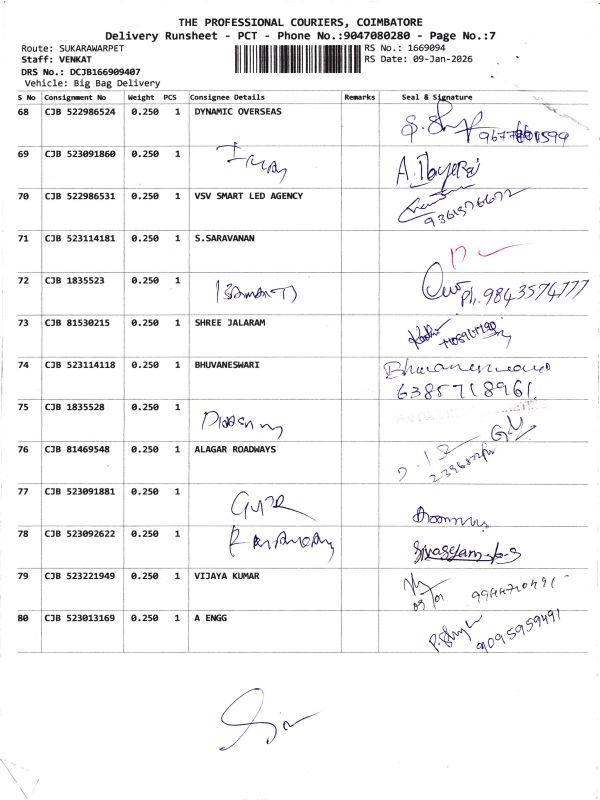 THE PROFESSIONAL COURIERS, COIMBATORE
Delivery Runsheet - PCT - Phone No.:9047080280 - Page No.:7
Route: SUKARAWARPET RS No.: 1669094
Staff: VENKAT RS Date: 09-Jan-2026
DRS No.: DCJB166909407
Vehicle: Big Bag Delivery
S No Consignment No Weight PCS Consignee Details Remarks Seal & Signature
68 CJB 522986524 0.250 1 DYNAMIC OVERSEAS
69 CJB 523091860 0.250 1
70 CJB 522986531 0.250 1 VSV SMART LED AGENCY
9361576672
71 CJB 523114181 0.250 1 S.SARAVANAN
72 CJB 1835523 0.250 1
Ph. 9843574777
73 CJB 81530215 0.250 1 SHREE JALARAM
74 CJB 523114118 0.250 1 BHUVANESWARI Bhuvaneswari
6385718961
75 CJB 1835528 0.250 1
76 CJB 81469548 0.250 1 ALAGAR ROADWAYS
77 CJB 523091881 0.250 1
78 CJB 523092622 0.250 1
79 CJB 523221949 0.250 1 VIJAYA KUMAR 9944710491
09/01
80 CJB 523013169 0.250 1 A ENGG
9095959491